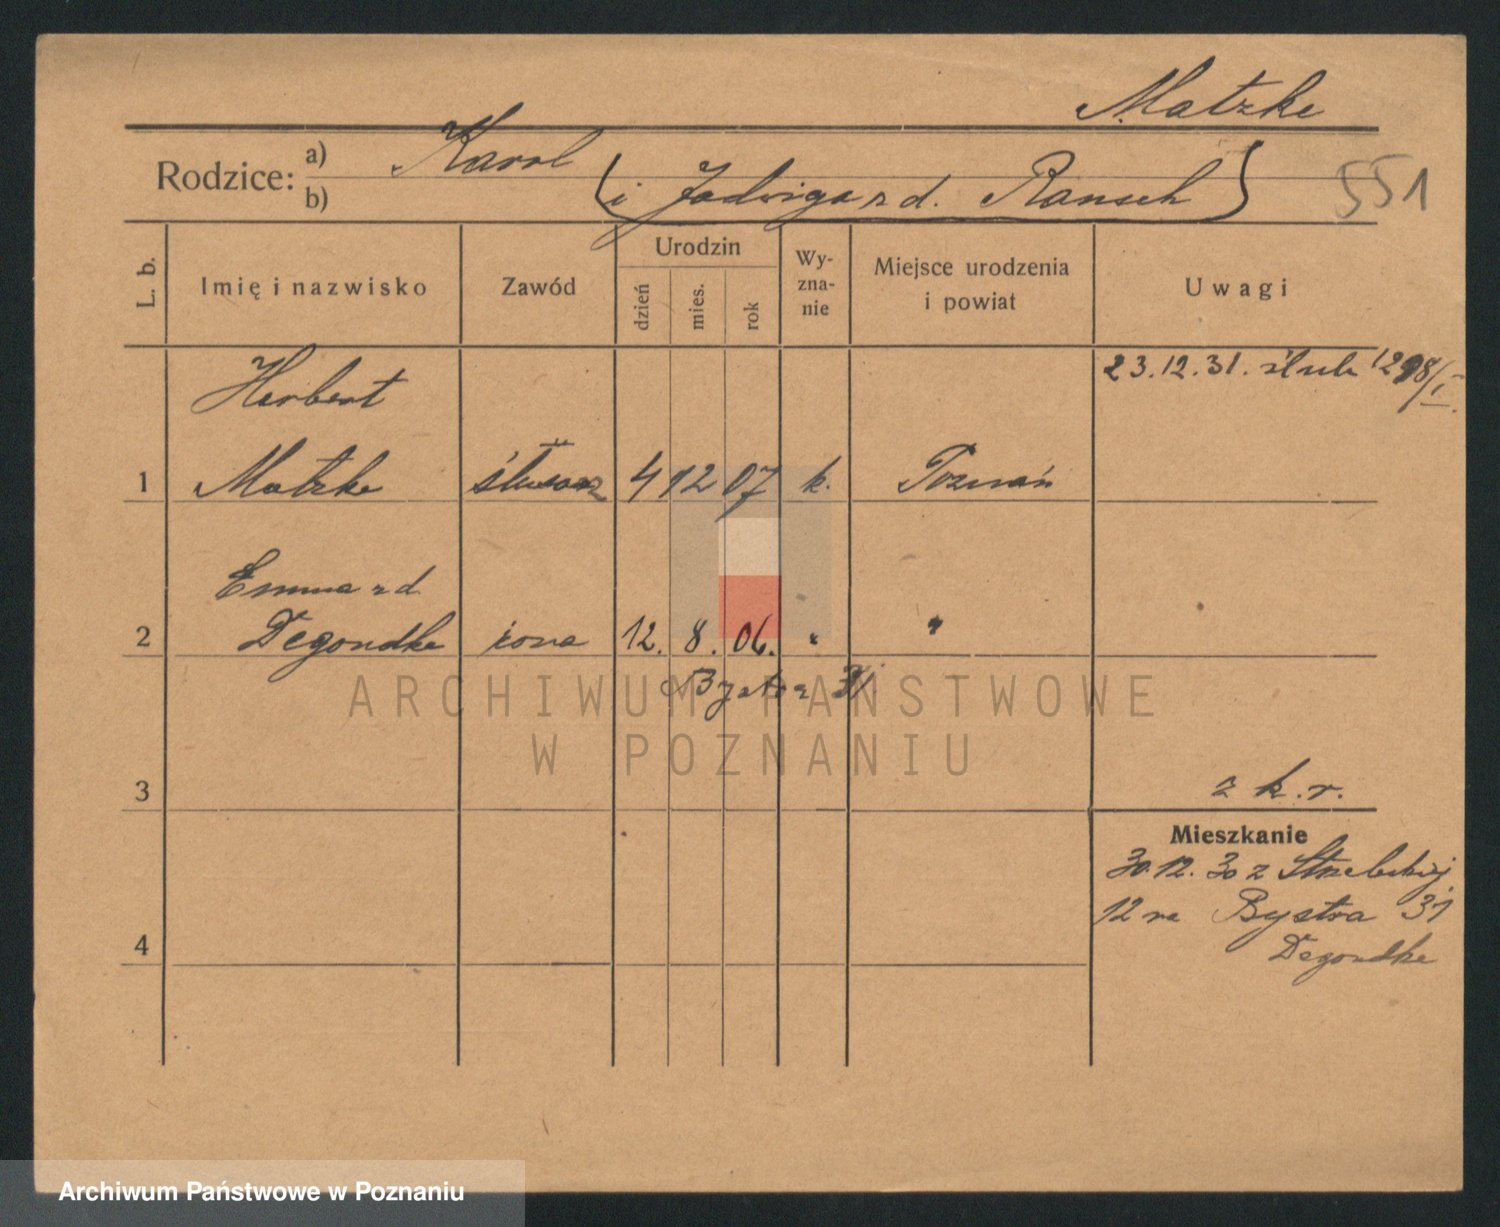 Matzke
Rodzice: a) Karol
b) (i Jadwiga z d. Rausch)
551
L. b.
Imię i nazwisko
Zawód
Urodzin
dzień
mies.
rok
Wy-
zna-
nie
Miejsce urodzenia
i powiat
Uwagi
Herbert
23.12.31. ślub
1 Matzke ślusarz 4 12 07 k. Poznań
Emma z d.
2 Degondke żona 12. 8. 06. " "
Bystra 31
3
z k. r.
Mieszkanie
30.12.30 z Strzeleckiej
12 na Bystra 31
4
Degondke
ARCHIWUM PAŃSTWOWE
W POZNANIU
Archiwum Państwowe w Poznaniu